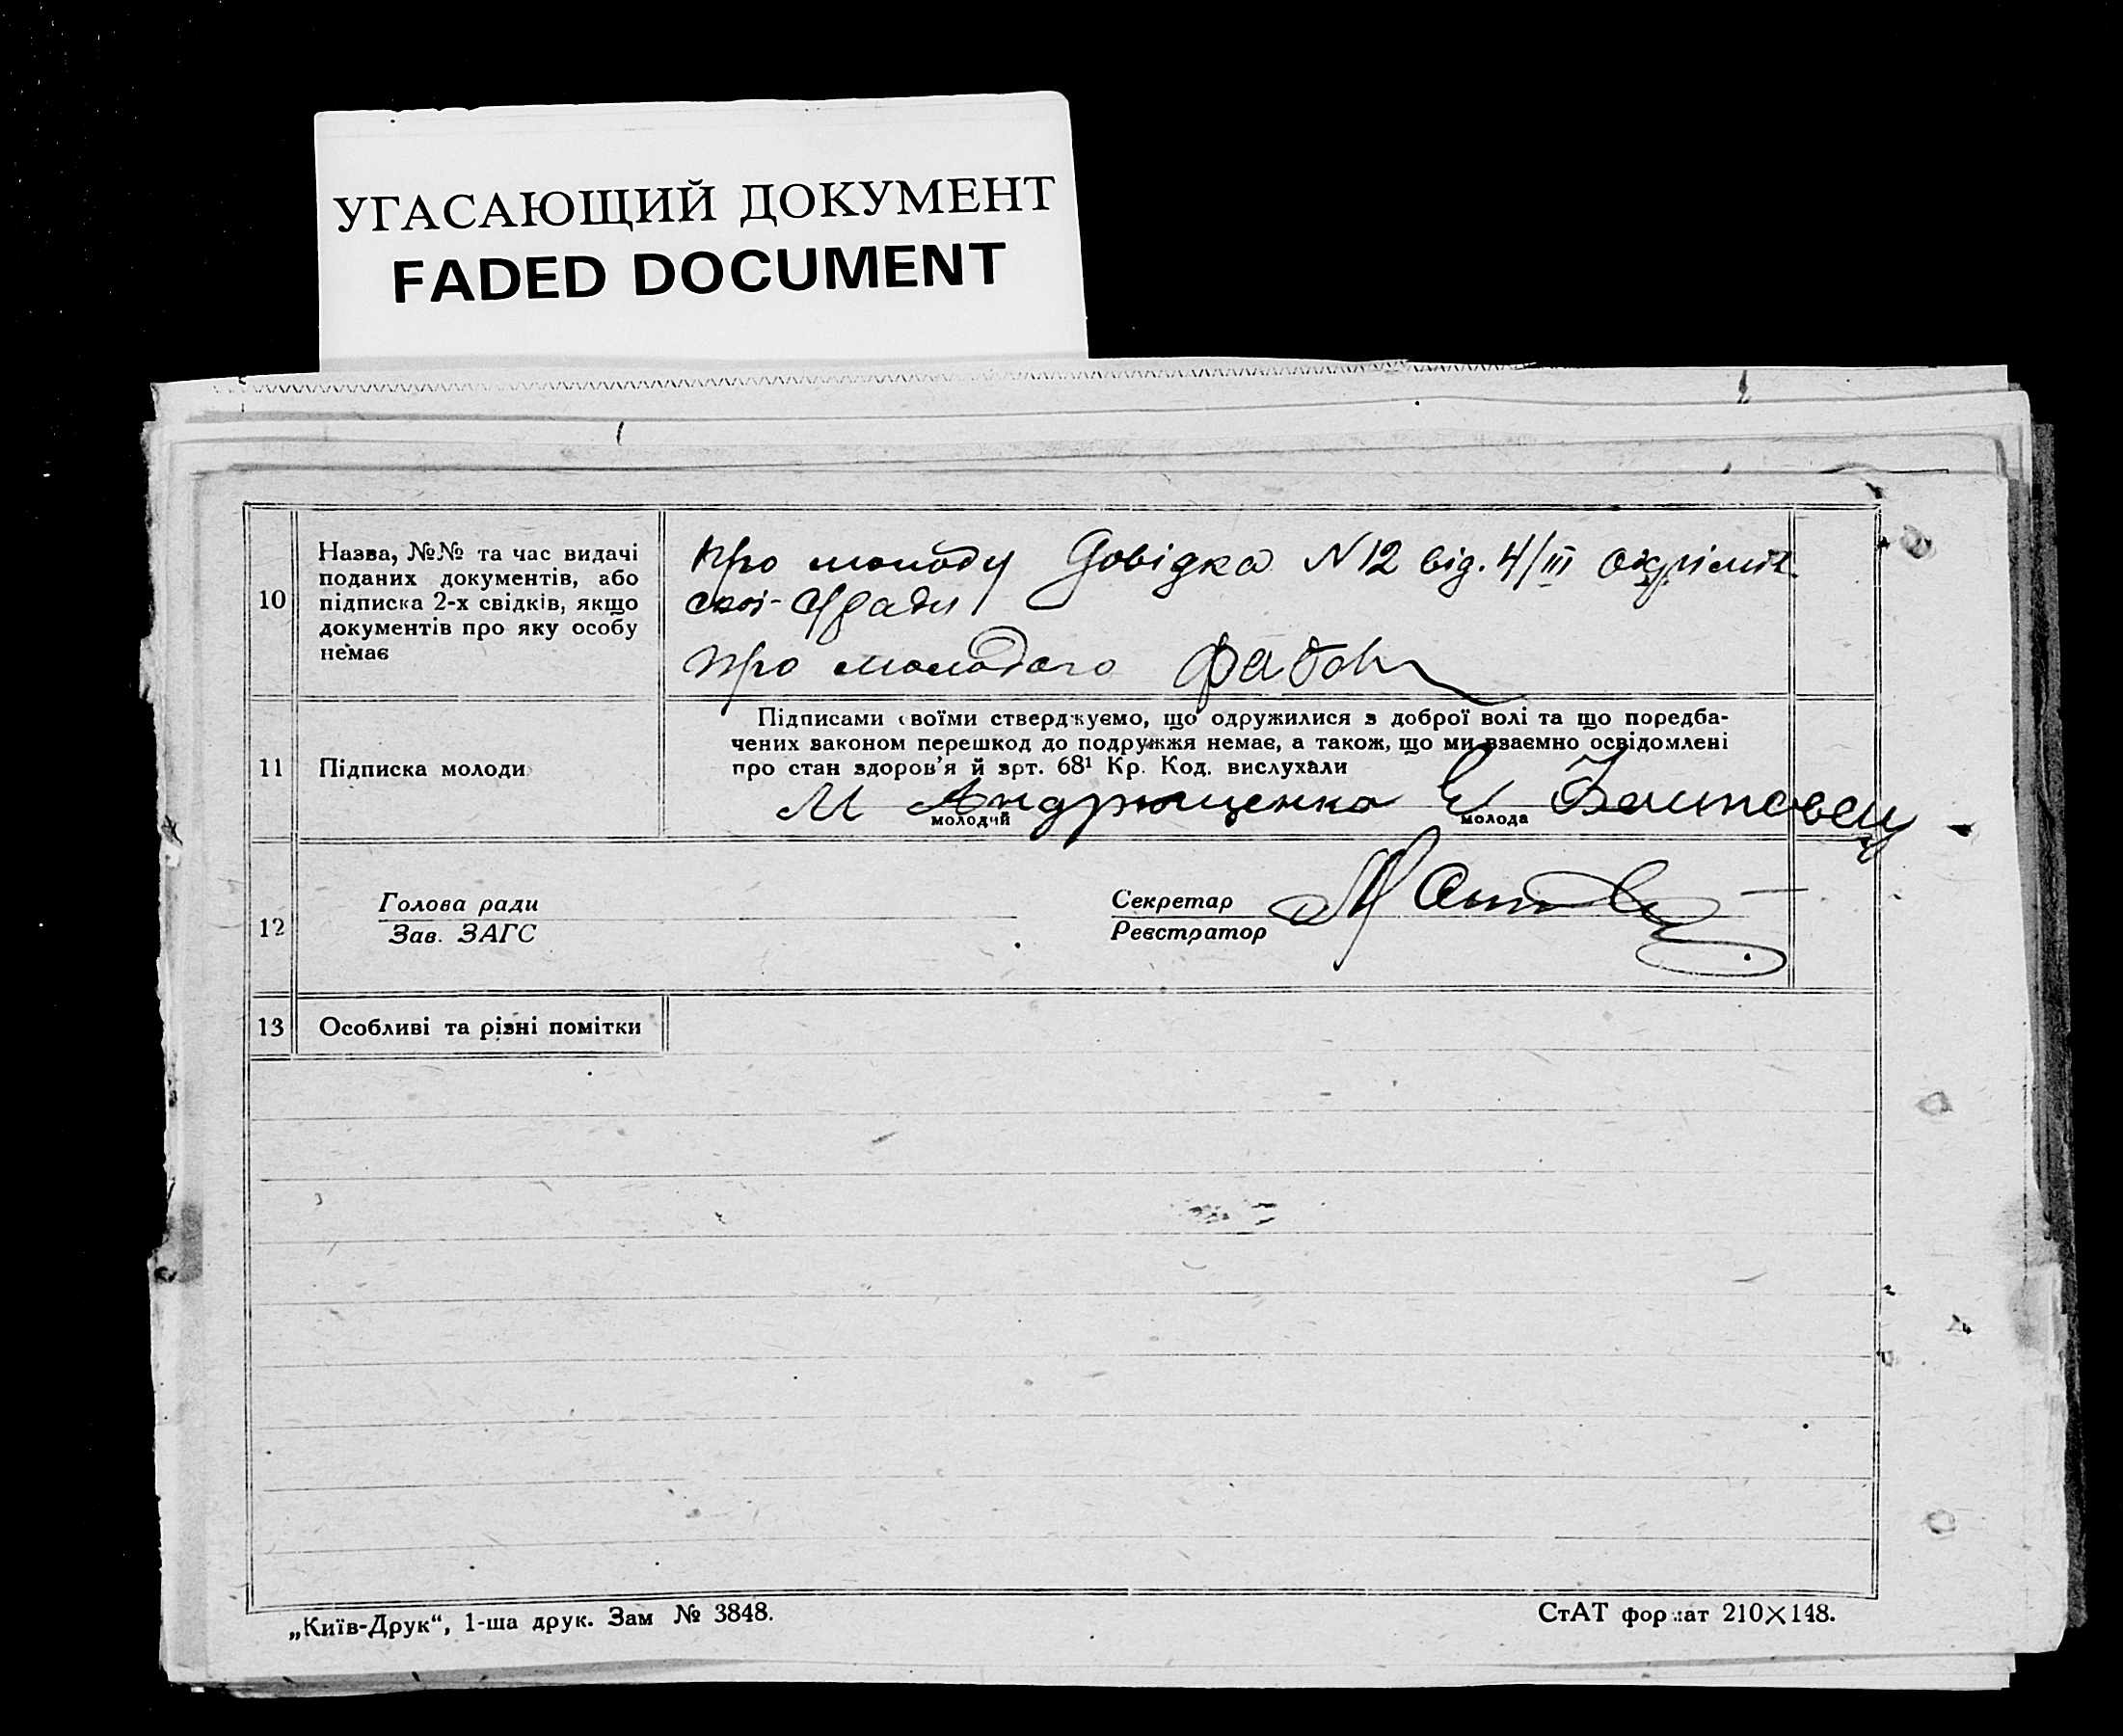 УГАСАЮЩИЙ ДОКУМЕНТ
FADED DOCUMENT
10
Назва, №№ та час видачі
поданих документів, або
підписка 2-х свідків, якщо
документів про яку особу
немає
Про молоду Довідка N 12 від. 4/III
Ради
Про молодого
11
Підписка молоди
Підписами своїми стверджуємо, що одружилися з доброї волі та що поредба-
чених законом перешкод до подружжя немає, а також, що ми взаємно освідомлені
про стан здоров'я й арт. 68¹ Кр. Код. вислухали
М Андрющенко Є
молодий молода
12
Голова ради
Зав. ЗАГС
Секретар
Реєстратор
13
Особливі та різні помітки
„Київ-Друк“, 1-ша друк. Зам № 3848.
СтАТ формат 210×148.